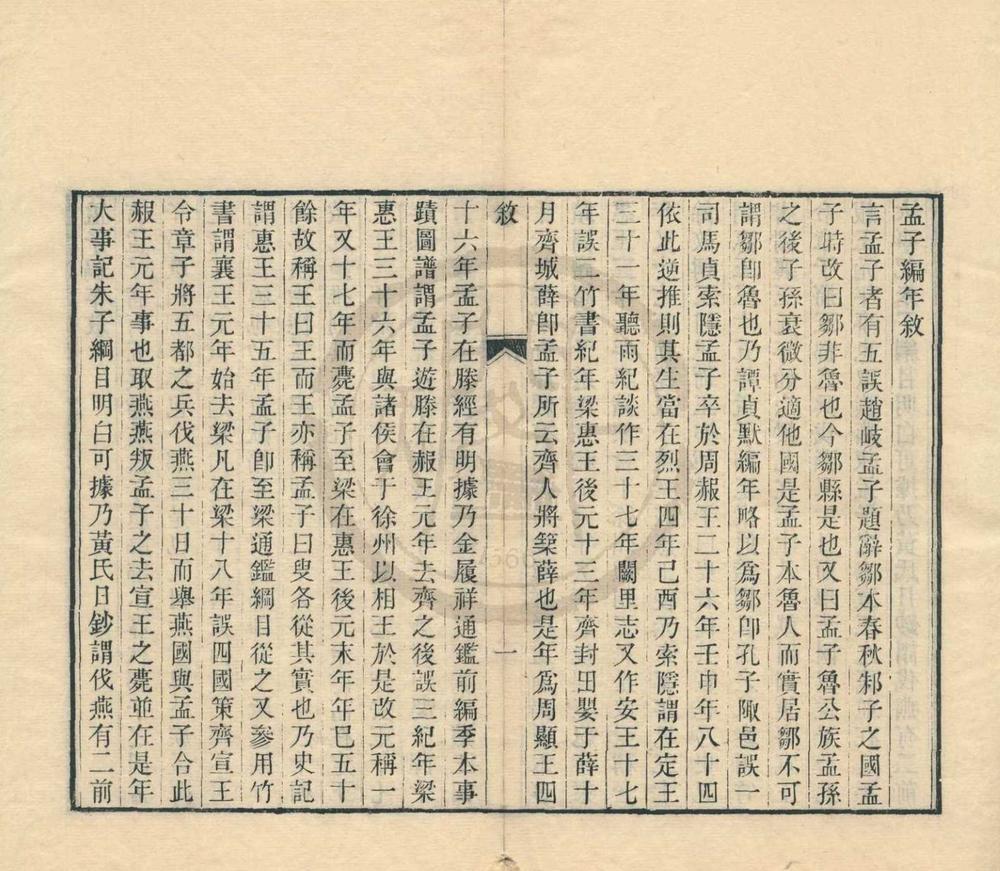 孟子編年敘
言孟子者有五誤趙岐孟子題辭鄒本春秋邾子之國孟
子時改曰鄒非魯也今鄒縣是也又曰孟子魯公族孟孫
之後子孫衰微分適他國是孟子本魯人而實居鄒不可
謂鄒卽魯也乃譚貞默編年略以爲鄒卽孔子陬邑誤一
司馬貞索隱孟子卒於周赧王二十六年壬申年八十四
依此逆推則其生當在烈王四年己酉乃索隱謂在定王
三十一年聽雨紀談作三十七年闕里志又作安王十七
年誤二竹書紀年梁惠王後元十三年齊封田嬰于薛十
月齊城薛卽孟子所云齊人將築薛也是年爲周顯王四
敘
一
十六年孟子在滕經有明據乃金履祥通鑑前編季本事
蹟圖譜謂孟子遊滕在赧王元年去齊之後誤三紀年梁
惠王三十六年與諸侯會于徐州以相王於是改元稱一
年又十七年而薨孟子至梁在惠王後元末年年已五十
餘故稱王曰王而王亦稱孟子曰叟各從其實也乃史記
謂惠王三十五年孟子卽至梁通鑑綱目從之又參用竹
書謂襄王元年始去梁凡在梁十八年誤四國策齊宣王
令章子將五都之兵伐燕三十日而舉燕國與孟子合此
赧王元年事也取燕燕叛孟子之去宣王之薨並在是年
大事記朱子綱目明白可據乃黃氏日鈔謂伐燕有二前